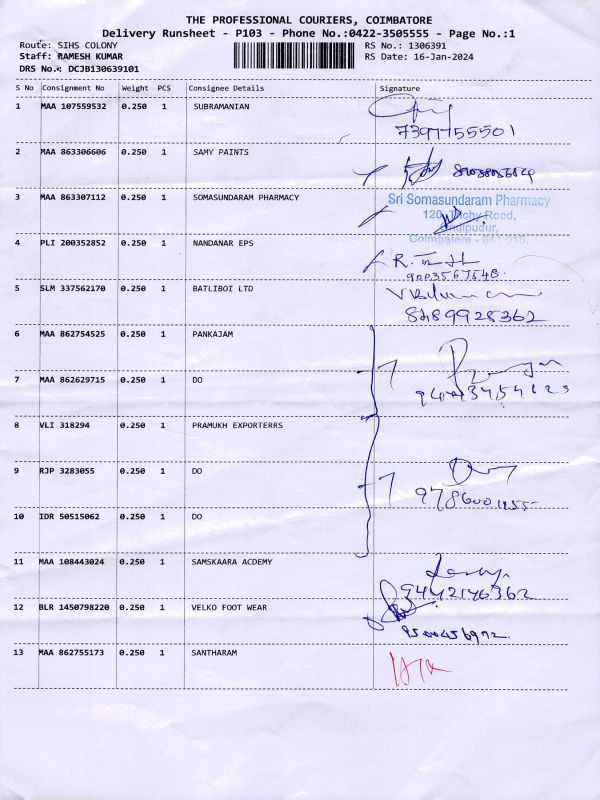 THE PROFESSIONAL COURIERS, COIMBATORE
Delivery Runsheet - P103 - Phone No.:0422-3505555 - Page No.:1
Route: SIHS COLONY RS No.: 1306391
Staff: RAMESH KUMAR RS Date: 16-Jan-2024
DRS No.: DCJB130639101
S No Consignment No Weight PCS Consignee Details Signature
1 MAA 107559532 0.250 1 SUBRAMANIAN
2 MAA 863306606 0.250 1 SAMY PAINTS
3 MAA 863307112 0.250 1 SOMASUNDARAM PHARMACY Sri Somasundaram Pharmacy
120, Trichy Road,
Coimbatore - 641 016.
4 PLI 200352852 0.250 1 NANDANAR EPS
5 SLM 337562170 0.250 1 BATLIBOI LTD
8489928362
6 MAA 862754525 0.250 1 PANKAJAM
7 MAA 862629715 0.250 1 DO
8 VLI 318294 0.250 1 PRAMUKH EXPORTERRS
9 RJP 3283055 0.250 1 DO
10 IDR 50515062 0.250 1 DO
11 MAA 108443024 0.250 1 SAMSKAARA ACDEMY
9442146362
12 BLR 1450798220 0.250 1 VELKO FOOT WEAR
9500456972
13 MAA 862755173 0.250 1 SANTHARAM